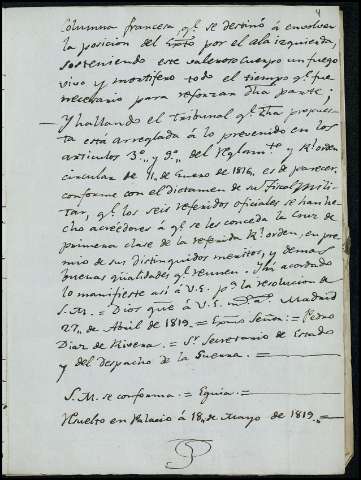 4
columna francesa, q.e se destinó á envolver
la posicion del Exto por el ala izquierda,
sosteniendo este valeroso cuerpo un fuego
vivo y mortifero todo el tiempo q.e fue
necesario para reforzar dha parte;
— Y hallando el Tribunal q.e dha propues-
ta está arreglada á lo prevenido en los
articulos 3.o y 9.o del Reglam.to y Rl orden
circular de 11 de Enero de 1816, es de parecer,
conforme con el dictamen de su Fiscal Mili-
tar, q.e los seis referidos oficiales se han he-
cho acreédores á q.e se les conceda la Cruz de
primera clase de la referida Rl orden, en pre-
mio de sus distinguidos meritos, y demas
buenas qualidades q.e reunen. Y ha acordado
lo manifieste así á V.E. p.a la resolucion de
S.M. = Dios gue á V.E. m.s a.s Madrid
27 de Abril de 1819. = Exmo Señor. = Pedro
Diaz de Rivera. = S.r Secretario de Estado
y del Despacho de la Guerra. =
S.M. se conforma. = Eguia. =
Rsuelto en Palacio á 18 de Mayo de 1819. =